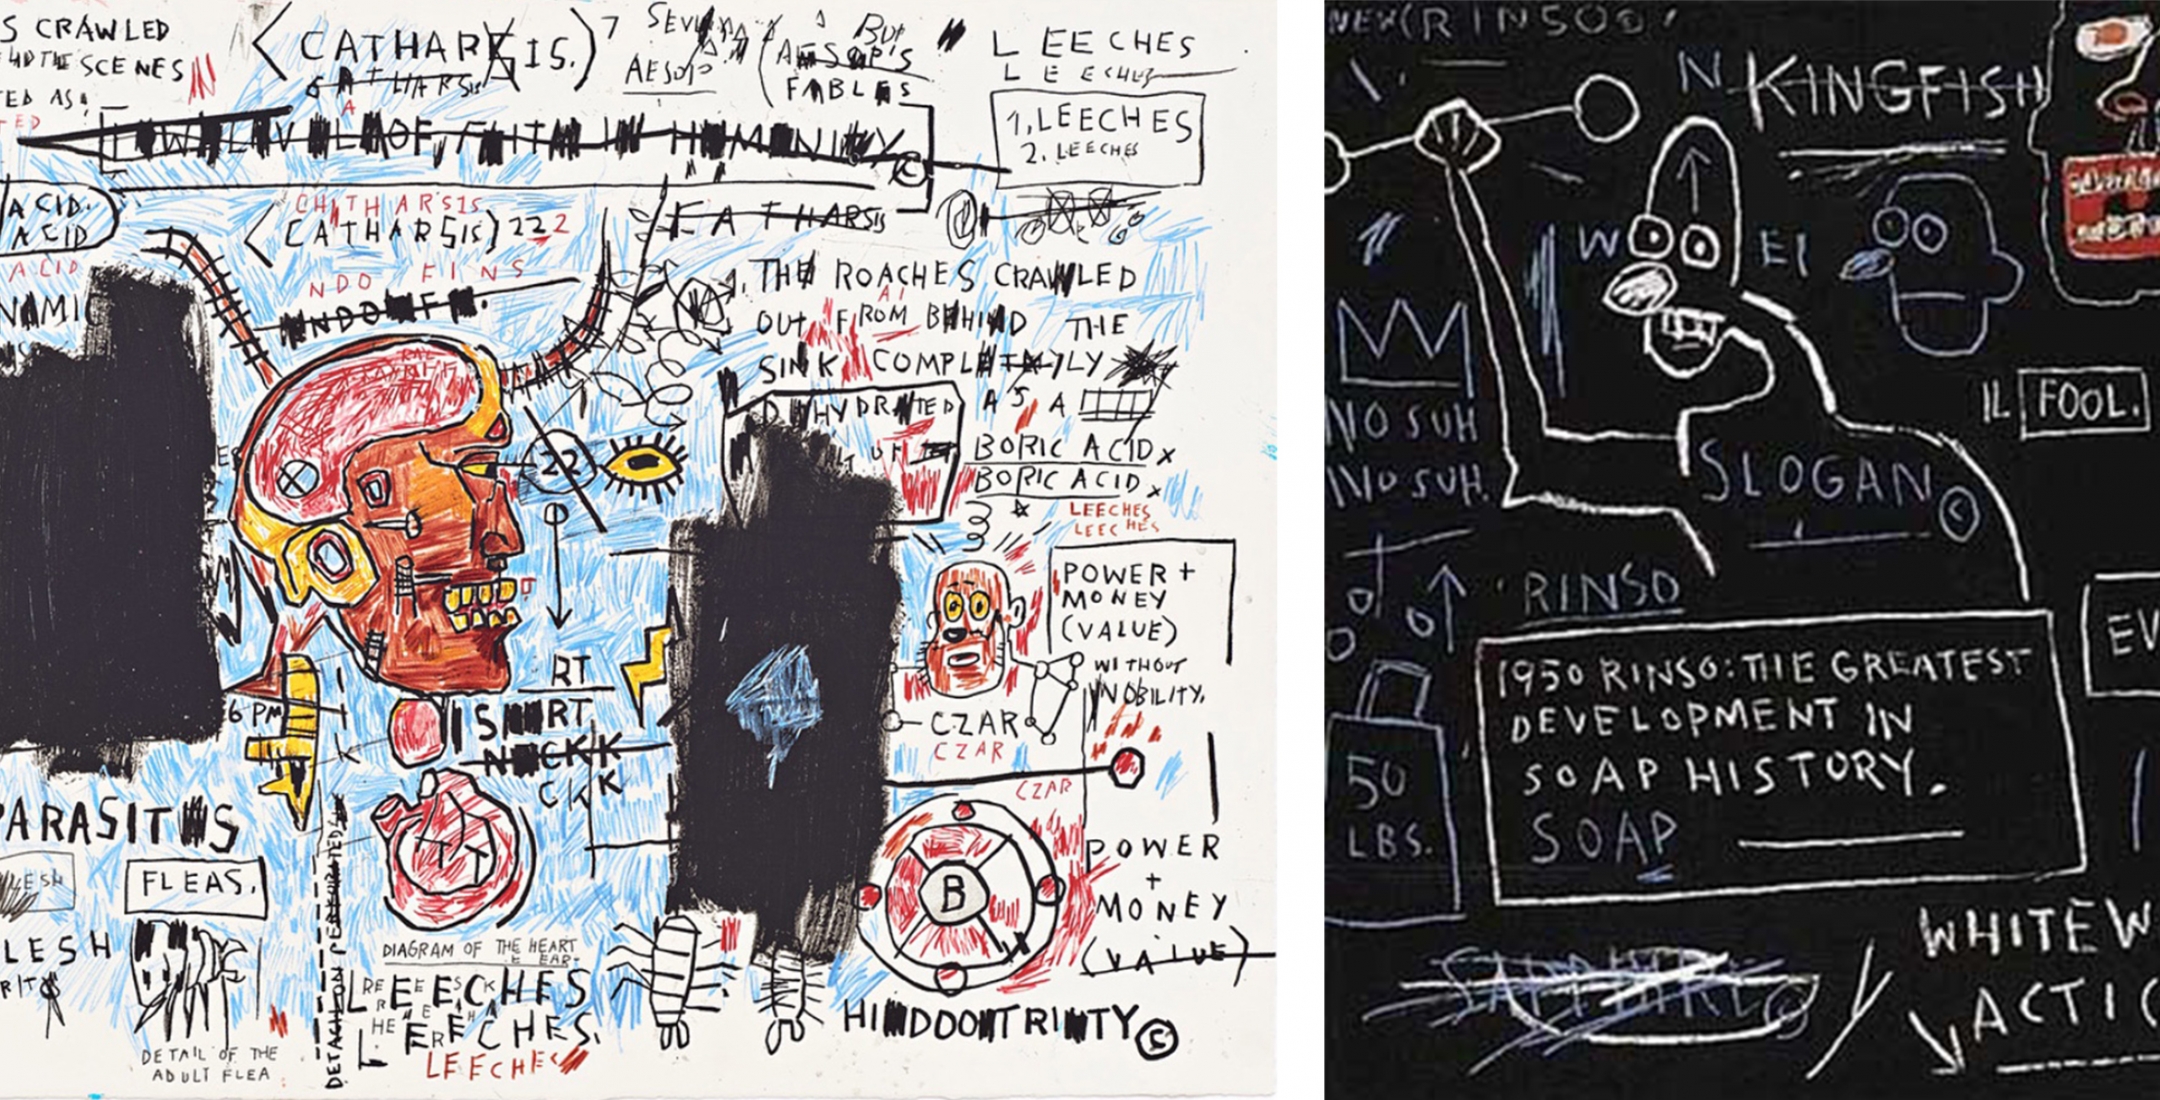 S CRAWLED
THE SCENES
TED AS
(CATHARSIS.) 7
CATHARSIS
AESOP
BUT
AESOP'S
FABLES
LEECHES
LEECHES
1. LEECHES
2. LEECHES
LOW LEVEL OF FAITH IN HUMANITY ©
ACID.
ACID
ACID
NAMIC
CATHARSIS
(CATHARSIS) 222
CATHARSIS
NDO FINS
1. THE ROACHES CRAWLED
OUT FROM BEHIND THE
SINK COMPLETELY
DEHYDRATED AS A
BORIC ACID X
BORIC ACID X
LEECHES
LEECHES
22
POWER +
MONEY
(VALUE)
WITHOUT
NOBILITY.
CZAR
CZAR
CZAR
6 PM
RT
RT
CK K
PARASITES
FLEAS.
LESH
DETAIL OF THE
ADULT FLEA
DETACH ON PERFORATED
DIAGRAM OF THE HEART
LEECHES
LEECHES.
LEECHES
B
POWER
+
MONEY
(VALUE)
HINDOO TRINITY ©
NEW (RINSO)
N KINGFISH
W EI
IL FOOL.
NO SUH
NO SUH.
SLOGAN ©
RINSO
1950 RINSO: THE GREATEST
DEVELOPMENT IN
SOAP HISTORY.
SOAP
50
LBS.
EV
WHITEW
ACTIC